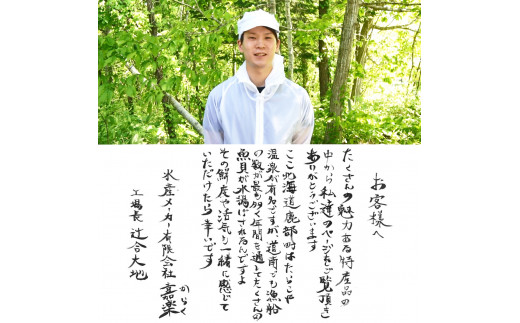 お客様へ
たくさんの魅力ある特産品の
中から私達のページをご覧頂き
ありがとうございます
ここ北海道鹿部町はたらこや
温泉が有名ですが、道南でも漁船
の数が最も多く年間を通してたくさんの
魚貝が水揚げされるんですよ
その鮮度や活気も一緒に感じて
いただけたら幸いです
水産メーカー有限会社 嘉楽
からく
工場長 辻合大地